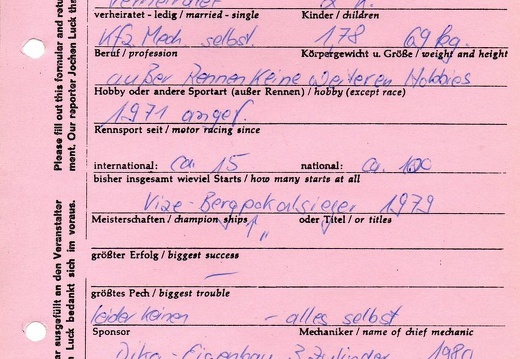 verheiratet - ledig / married - single Kinder / children
Kfz Mech selbst 178 69 kg.
Beruf / profession Körpergewicht u. Größe / weight and height
außer Rennen keine weiteren Hobbies
Hobby oder andere Sportart (außer Rennen) / hobby (except race)
1971 angef.
Rennsport seit / motor racing since
international: ca. 15 national: ca. 100
bisher insgesamt wieviel Starts / how many starts at all
Vize-Bergpokalsieger 1979
Meisterschaften / champion ships oder Titel / or titles
"
größter Erfolg / biggest success
—
größtes Pech / biggest trouble
leider keinen - alles selbst
Sponsor Mechaniker / name of chief mechanic
3 Zylinder 1980
Please fill out this formular and retu
ment. Our reporter Jochen Luck tha
ar ausgefüllt an den Veranstalter
n Luck bedankt sich im voraus.